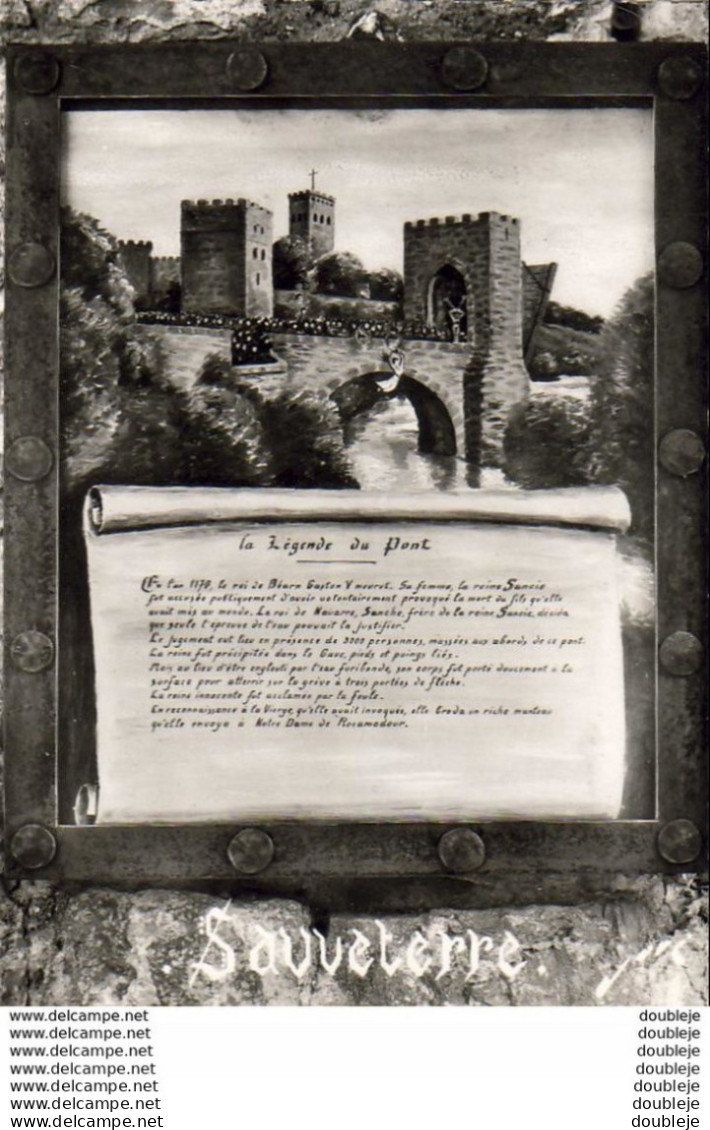 la Légende du Pont
En l'an 1170, le roi de Béarn Gaston V mourut. Sa femme, la reine Sancie
fut accusée publiquement d'avoir volontairement provoqué la mort du fils qu'elle
avait mis au monde. Le roi de Navarre, Sanche, frère de la reine Sancie, décida
que seule l'épreuve de l'eau pouvait la justifier.
Le jugement eut lieu en présence de 3000 personnes, massées aux abords de ce pont.
La reine fut précipitée dans le Gave, pieds et poings liés.
Mais au lieu d'être englouti par l'eau furibonde, son corps fut porté doucement à la
surface pour atterrir sur la grève à trois portées de flèche.
La reine innocente fut acclamée par la foule.
En reconnaissance à la Vierge, qu'elle avait invoquée, elle broda un riche manteau
qu'elle envoya à Notre Dame de Rocamadour.
. Sauveterre .
www.delcampe.net doubleje
www.delcampe.net doubleje
www.delcampe.net doubleje
www.delcampe.net doubleje
www.delcampe.net doubleje
www.delcampe.net doubleje
www.delcampe.net doubleje